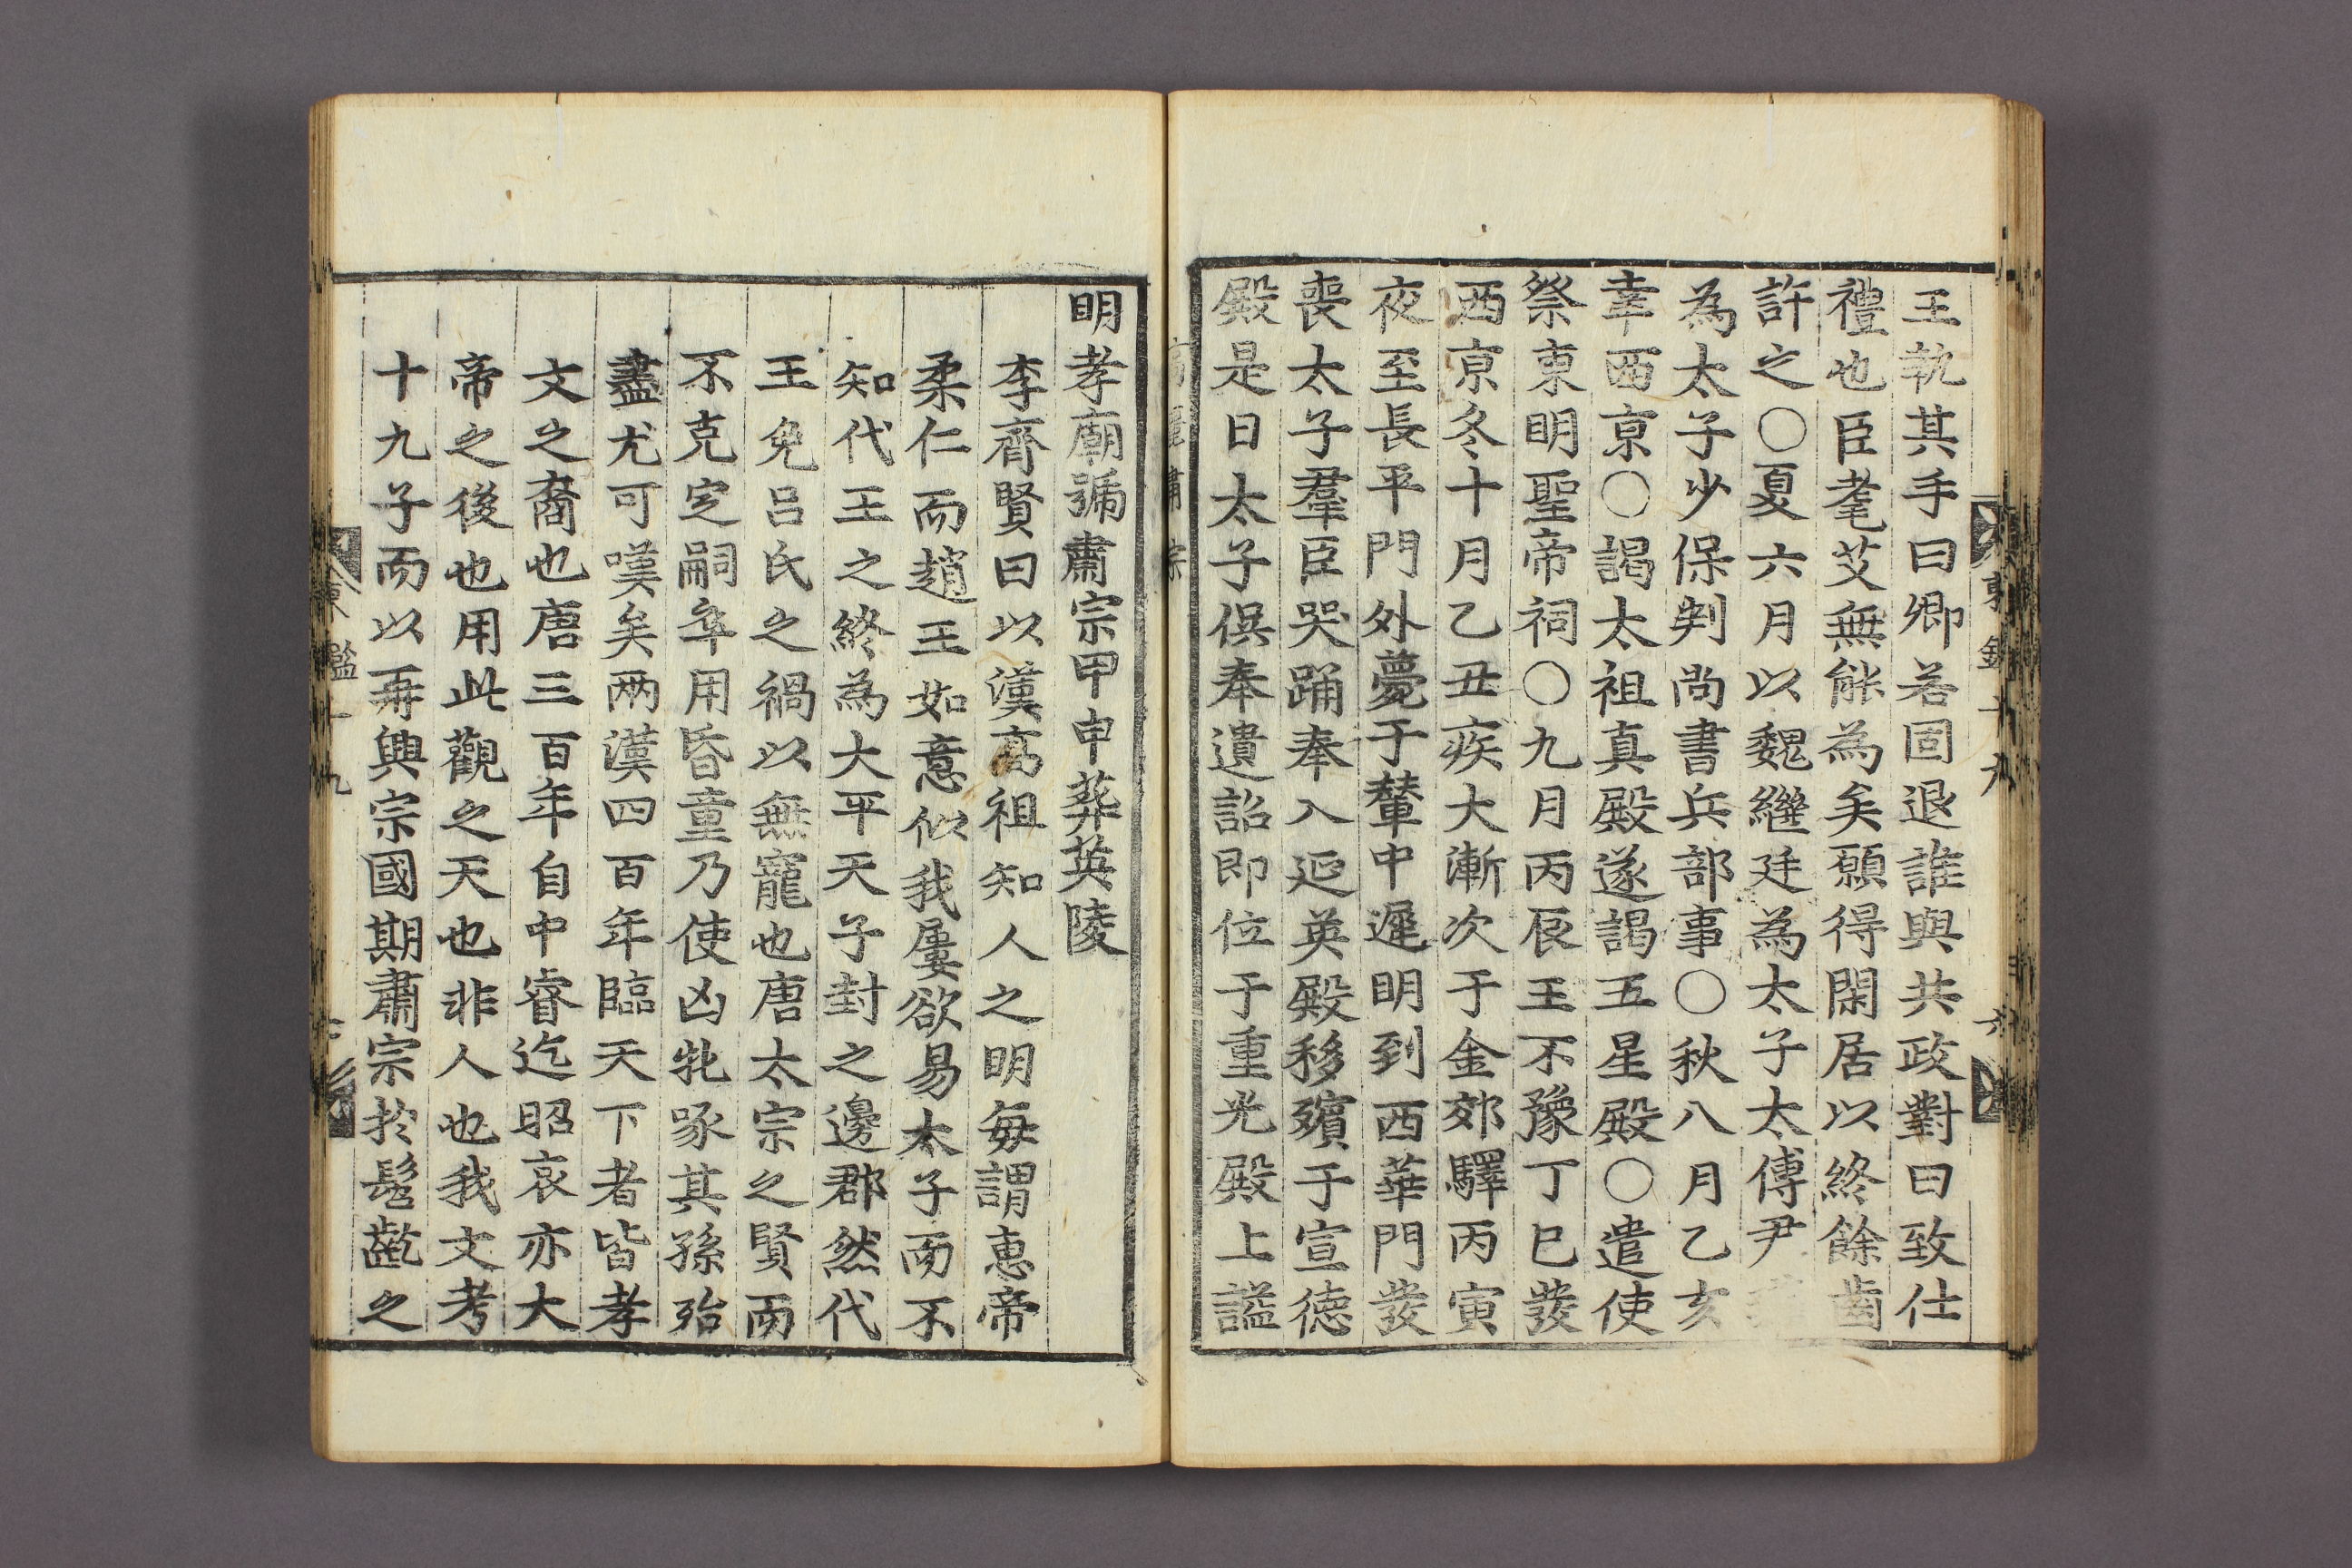 王執其手曰卿若固退誰與共政對曰致仕
禮也臣耄艾無能為矣願得閑居以終餘齒
許之○夏六月以魏繼廷為太子太傅尹
為太子少保判尚書兵部事○秋八月乙亥
幸西京○謁太祖真殿遂謁五星殿○遣使
祭東明聖帝祠○九月丙辰王不豫丁巳發
西京冬十月乙丑疾大漸次于金郊驛丙寅
夜至長平門外薨于輦中遲明到西華門發
喪太子羣臣哭踊奉入延英殿移殯于宣德
殿是日太子俁奉遺詔即位于重光殿上謚
明孝廟號肅宗甲申葬英陵
李齊賢曰以漢高祖知人之明每謂惠帝
柔仁而趙王如意似我屢欲易太子而不
知代王之終為大平天子封之邊郡然代
王免呂氏之禍以無寵也唐太宗之賢而
不克定嗣卒用昏童乃使凶牝啄其孫殆
盡尤可嘆矣兩漢四百年臨天下者皆孝
文之裔也唐三百年自中睿迄昭哀亦大
帝之後也用此觀之天也非人也我文考
十九子而以再興宗國期肅宗於髫齔之
東鑑十九